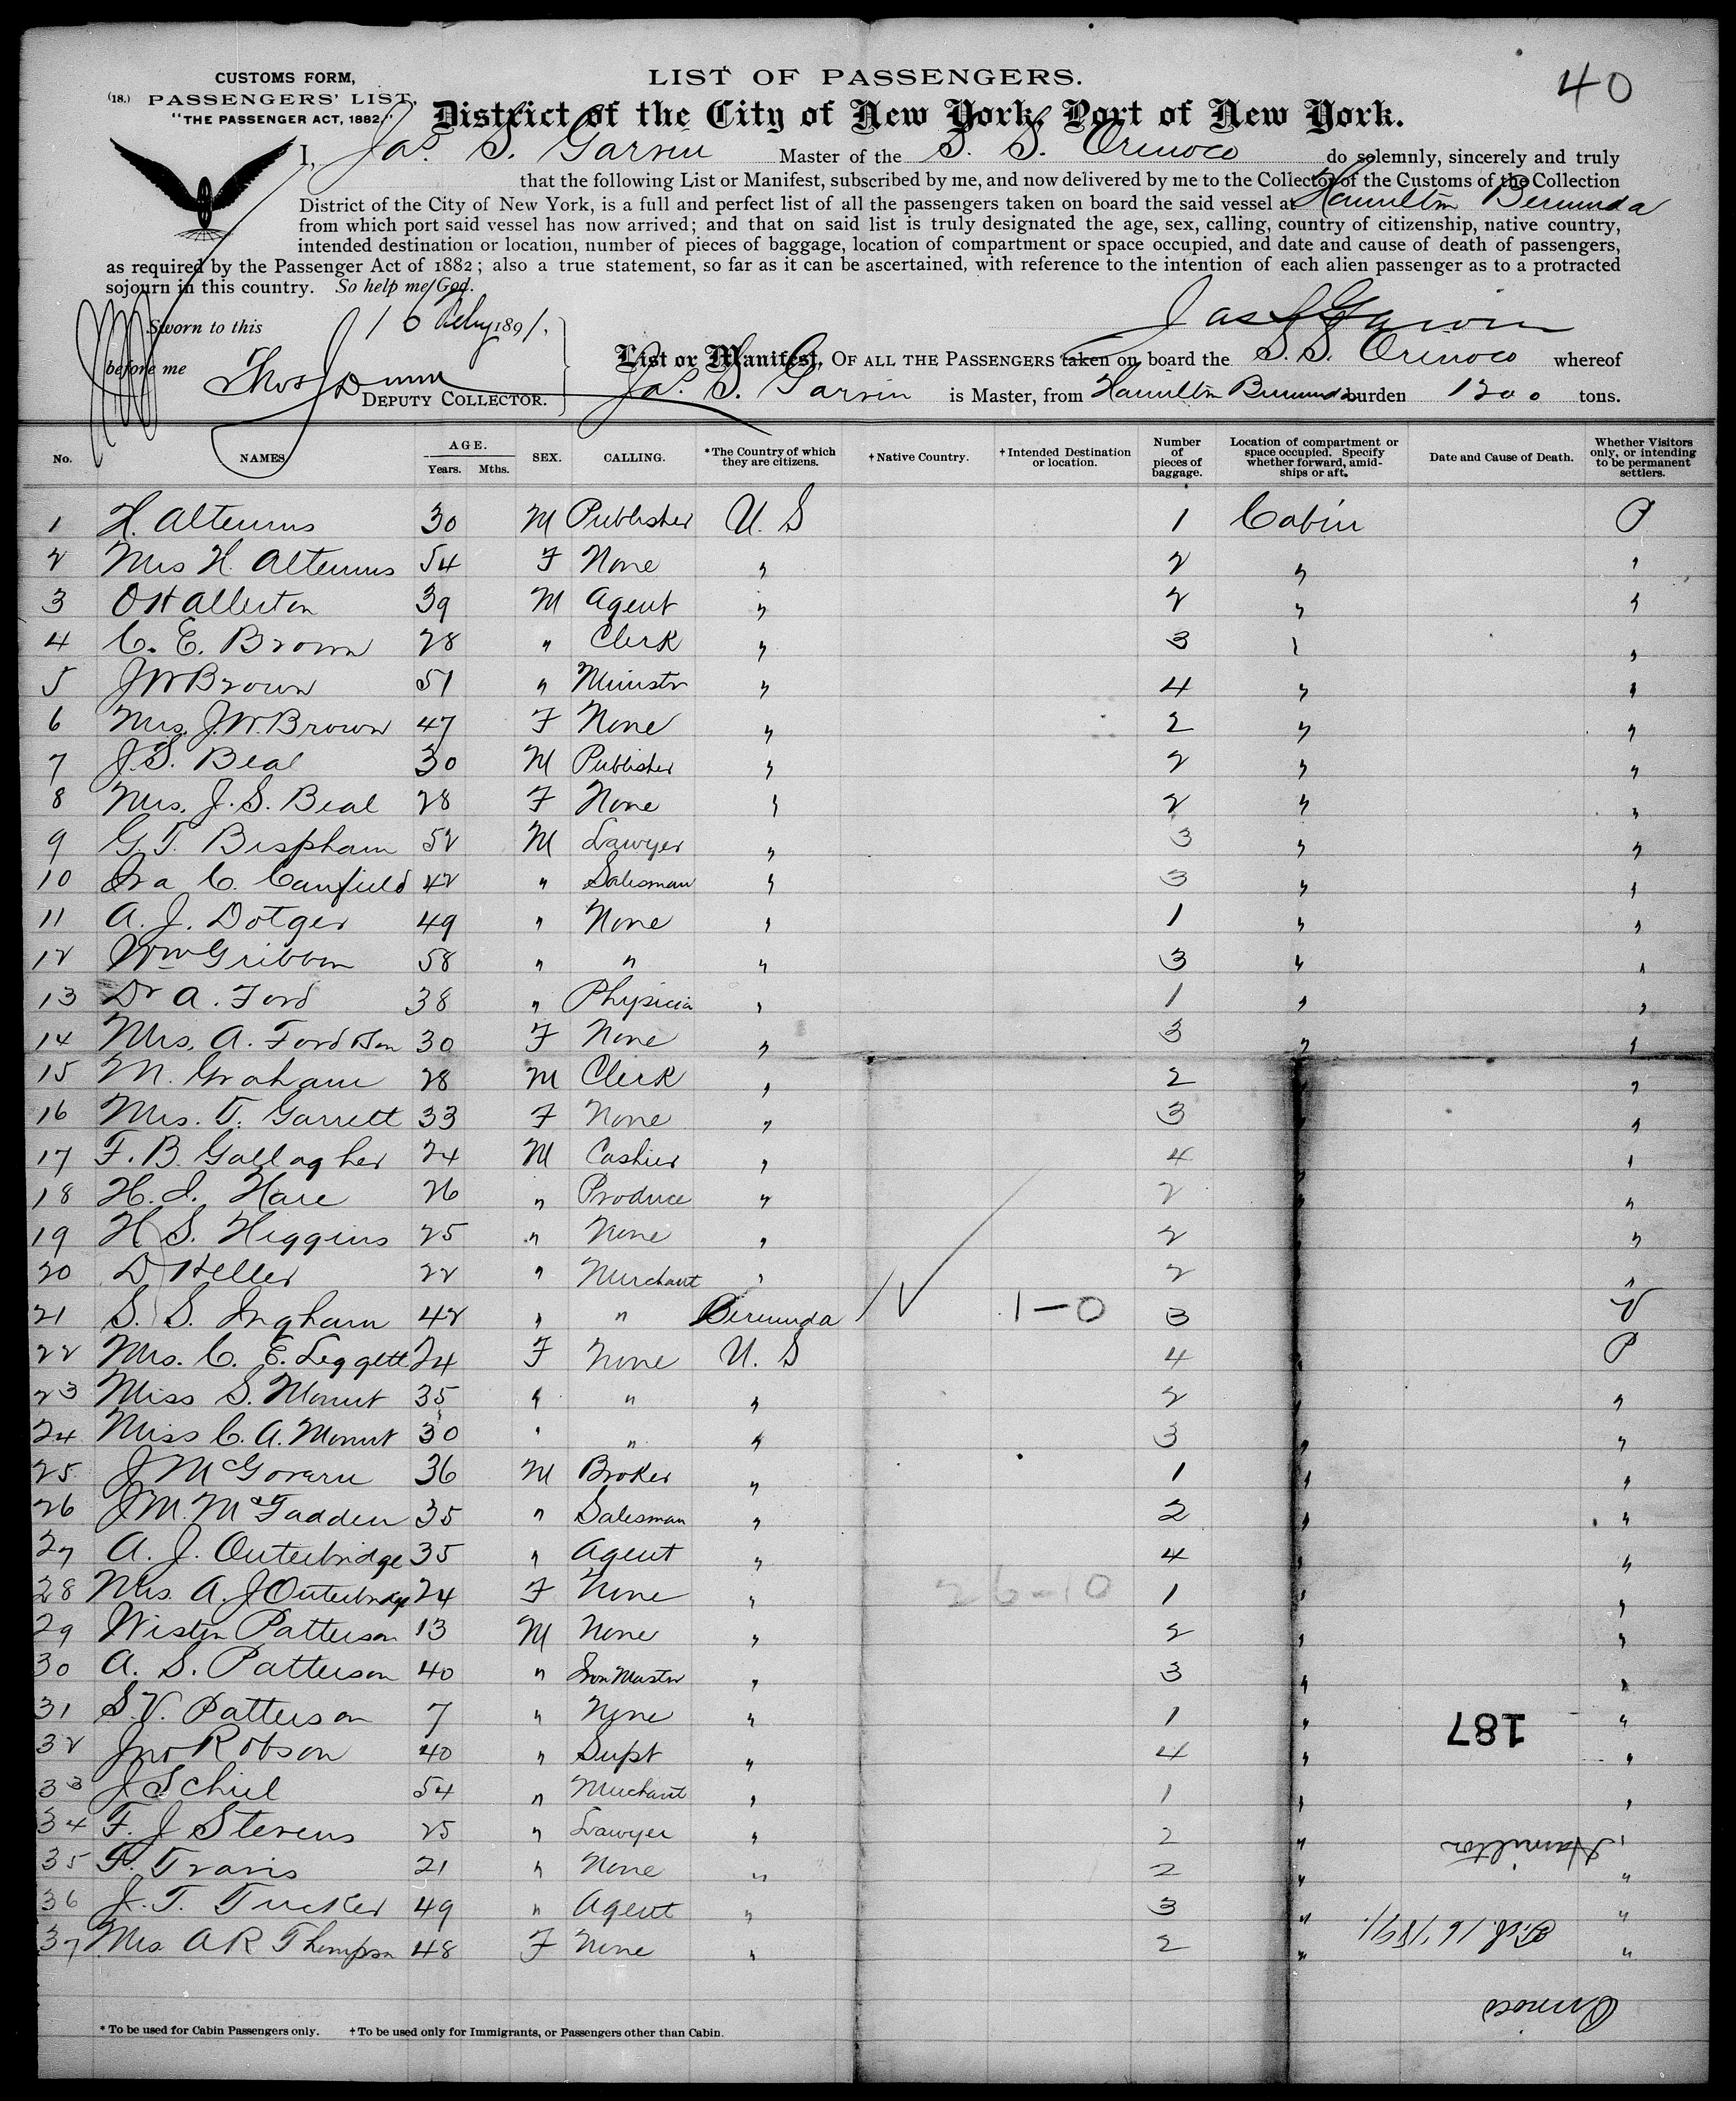 40
CUSTOMS FORM,
(18.) PASSENGERS' LIST,
"THE PASSENGER ACT, 1882."
LIST OF PASSENGERS.
District of the City of New York, Port of New York.
I, Jas. S. Garvin Master of the S. S. Orinoco do solemnly, sincerely and truly
that the following List or Manifest, subscribed by me, and now delivered by me to the Collector of the Customs of the Collection
District of the City of New York, is a full and perfect list of all the passengers taken on board the said vessel at Hamilton Bermuda
from which port said vessel has now arrived; and that on said list is truly designated the age, sex, calling, country of citizenship, native country,
intended destination or location, number of pieces of baggage, location of compartment or space occupied, and date and cause of death of passengers,
as required by the Passenger Act of 1882; also a true statement, so far as it can be ascertained, with reference to the intention of each alien passenger as to a protracted
sojourn in this country. So help me God.
Jas S Garvin
Sworn to this 16 Feby 1891,
before me Thos J Dunn
DEPUTY COLLECTOR.
List or Manifest, OF ALL THE PASSENGERS taken on board the S. S. Orinoco whereof
Jas. S. Garvin is Master, from Hamilton Bermuda burden 1200 tons.
No. NAMES AGE. Years. Mths. SEX. CALLING. *The Country of which they are citizens. †Native Country. †Intended Destination or location. Number of pieces of baggage. Location of compartment or space occupied. Specify whether forward, amidships or aft. Date and Cause of Death. Whether Visitors only, or intending to be permanent settlers.
1 H. Altemus 30 M Publisher U. S 1 Cabin P
2 Mrs H. Altemus 54 F None " 2 " "
3 O H Allerton 39 M Agent " 2 " "
4 C. E. Brown 28 " Clerk " 3 " "
5 J W Brown 51 " Ministr " 4 " "
6 Mrs. J. W. Brown 47 F None " 2 " "
7 J. S. Beal 30 M Publisher " 2 " "
8 Mrs. J. S. Beal 28 F None " 2 " "
9 G. T. Bispham 52 M Lawyer " 3 " "
10 Ira C. Canfield 42 " Salesman " 3 " "
11 A. J. Dotger 49 " None " 1 " "
12 Wm Gribbon 58 " " " 3 " "
13 Dr A. Ford 38 " Physicia " 1 " "
14 Mrs. A. Ford 30 F None " 3 " "
15 M. Graham 28 M Clerk " 2 " "
16 Mrs. T. Garrett 33 F None " 3 " "
17 F. B. Gallagher 24 M Cashier " 4 " "
18 H. I. Hare 26 " Produce " 2 " "
19 H S. Higgins 25 " None " 2 " "
20 D Heller 22 " Merchant " 2 " "
21 S. S. Ingham 42 " " Bermuda 1-0 3 V
22 Mrs. C. E. Leggett 24 F None U. S 4 " P
23 Miss S. 35 " " " 2 " "
24 Miss C. A. 30 " " " 3 " "
25 J McGovern 36 M Broker " 1 " "
26 J. M. McFadden 35 " Salesman " 2 " "
27 A. J. Outerbridge 35 " Agent " 4 " "
28 Mrs. A. J Outerbridge 24 F None " 26-10 1 " "
29 Wistin Patterson 13 M None " 2 " "
30 A. S. Patterson 40 " Iron Mastr " 3 " "
31 S. V. Patterson 7 " None " 1 " "
32 Jno Robson 40 " Supt " 4 " "
33 J Schiel 54 " Merchant " 1 " "
34 F. J Stevens 25 " Lawyer " 2 " "
35 F. Travis 21 " None " 2 " "
36 J. T. Tucker 49 " Agent " 3 " "
37 Mrs A R Thompson 48 F None " 2 " "
187
Hamilton
Feb. 16, 1891.
Orinoco
* To be used for Cabin Passengers only. † To be used only for Immigrants, or Passengers other than Cabin.